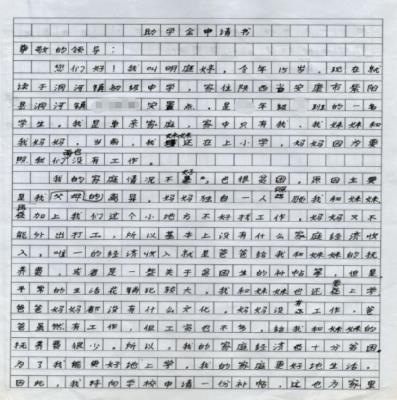 助学金申请书
尊敬的领导：
您们好！我叫明庭好，今年15岁，现在就
读于洄河镇初级中学，家住陕西省安康市紫阳
县洄河镇 安置点，是 年级 班的一名
学生。我是单亲家庭，家中只有我、我妹妹和
我妈妈，当前，我妹妹还在上小学，妈妈因为要
照我们没有工作。
我的家庭情况不好，也很贫困，原因主要
是我父母的离异，妈妈独自一人照顾我和妹妹，
加上我们这个小地方不好找工作，妈妈又不
能外出打工，所以基本上没有什么家庭经济收
入，唯一的经济收入就是爸爸给我和妹妹的抚
养费，或者是一些关于贫困生的补帖等，但是
平常的生活花销比较大，我和妹妹也还要上学
爸爸妈妈都没有什么文化，妈妈没有工作，爸
爸虽然有工作，但工资也不多，给我和妹妹的
抚养费很少。所以，我的家庭经济费十分贫困
为了我能更好地上学，我的家庭更好地生活，
因此，我特向学校申请一份补帖，这也为家里